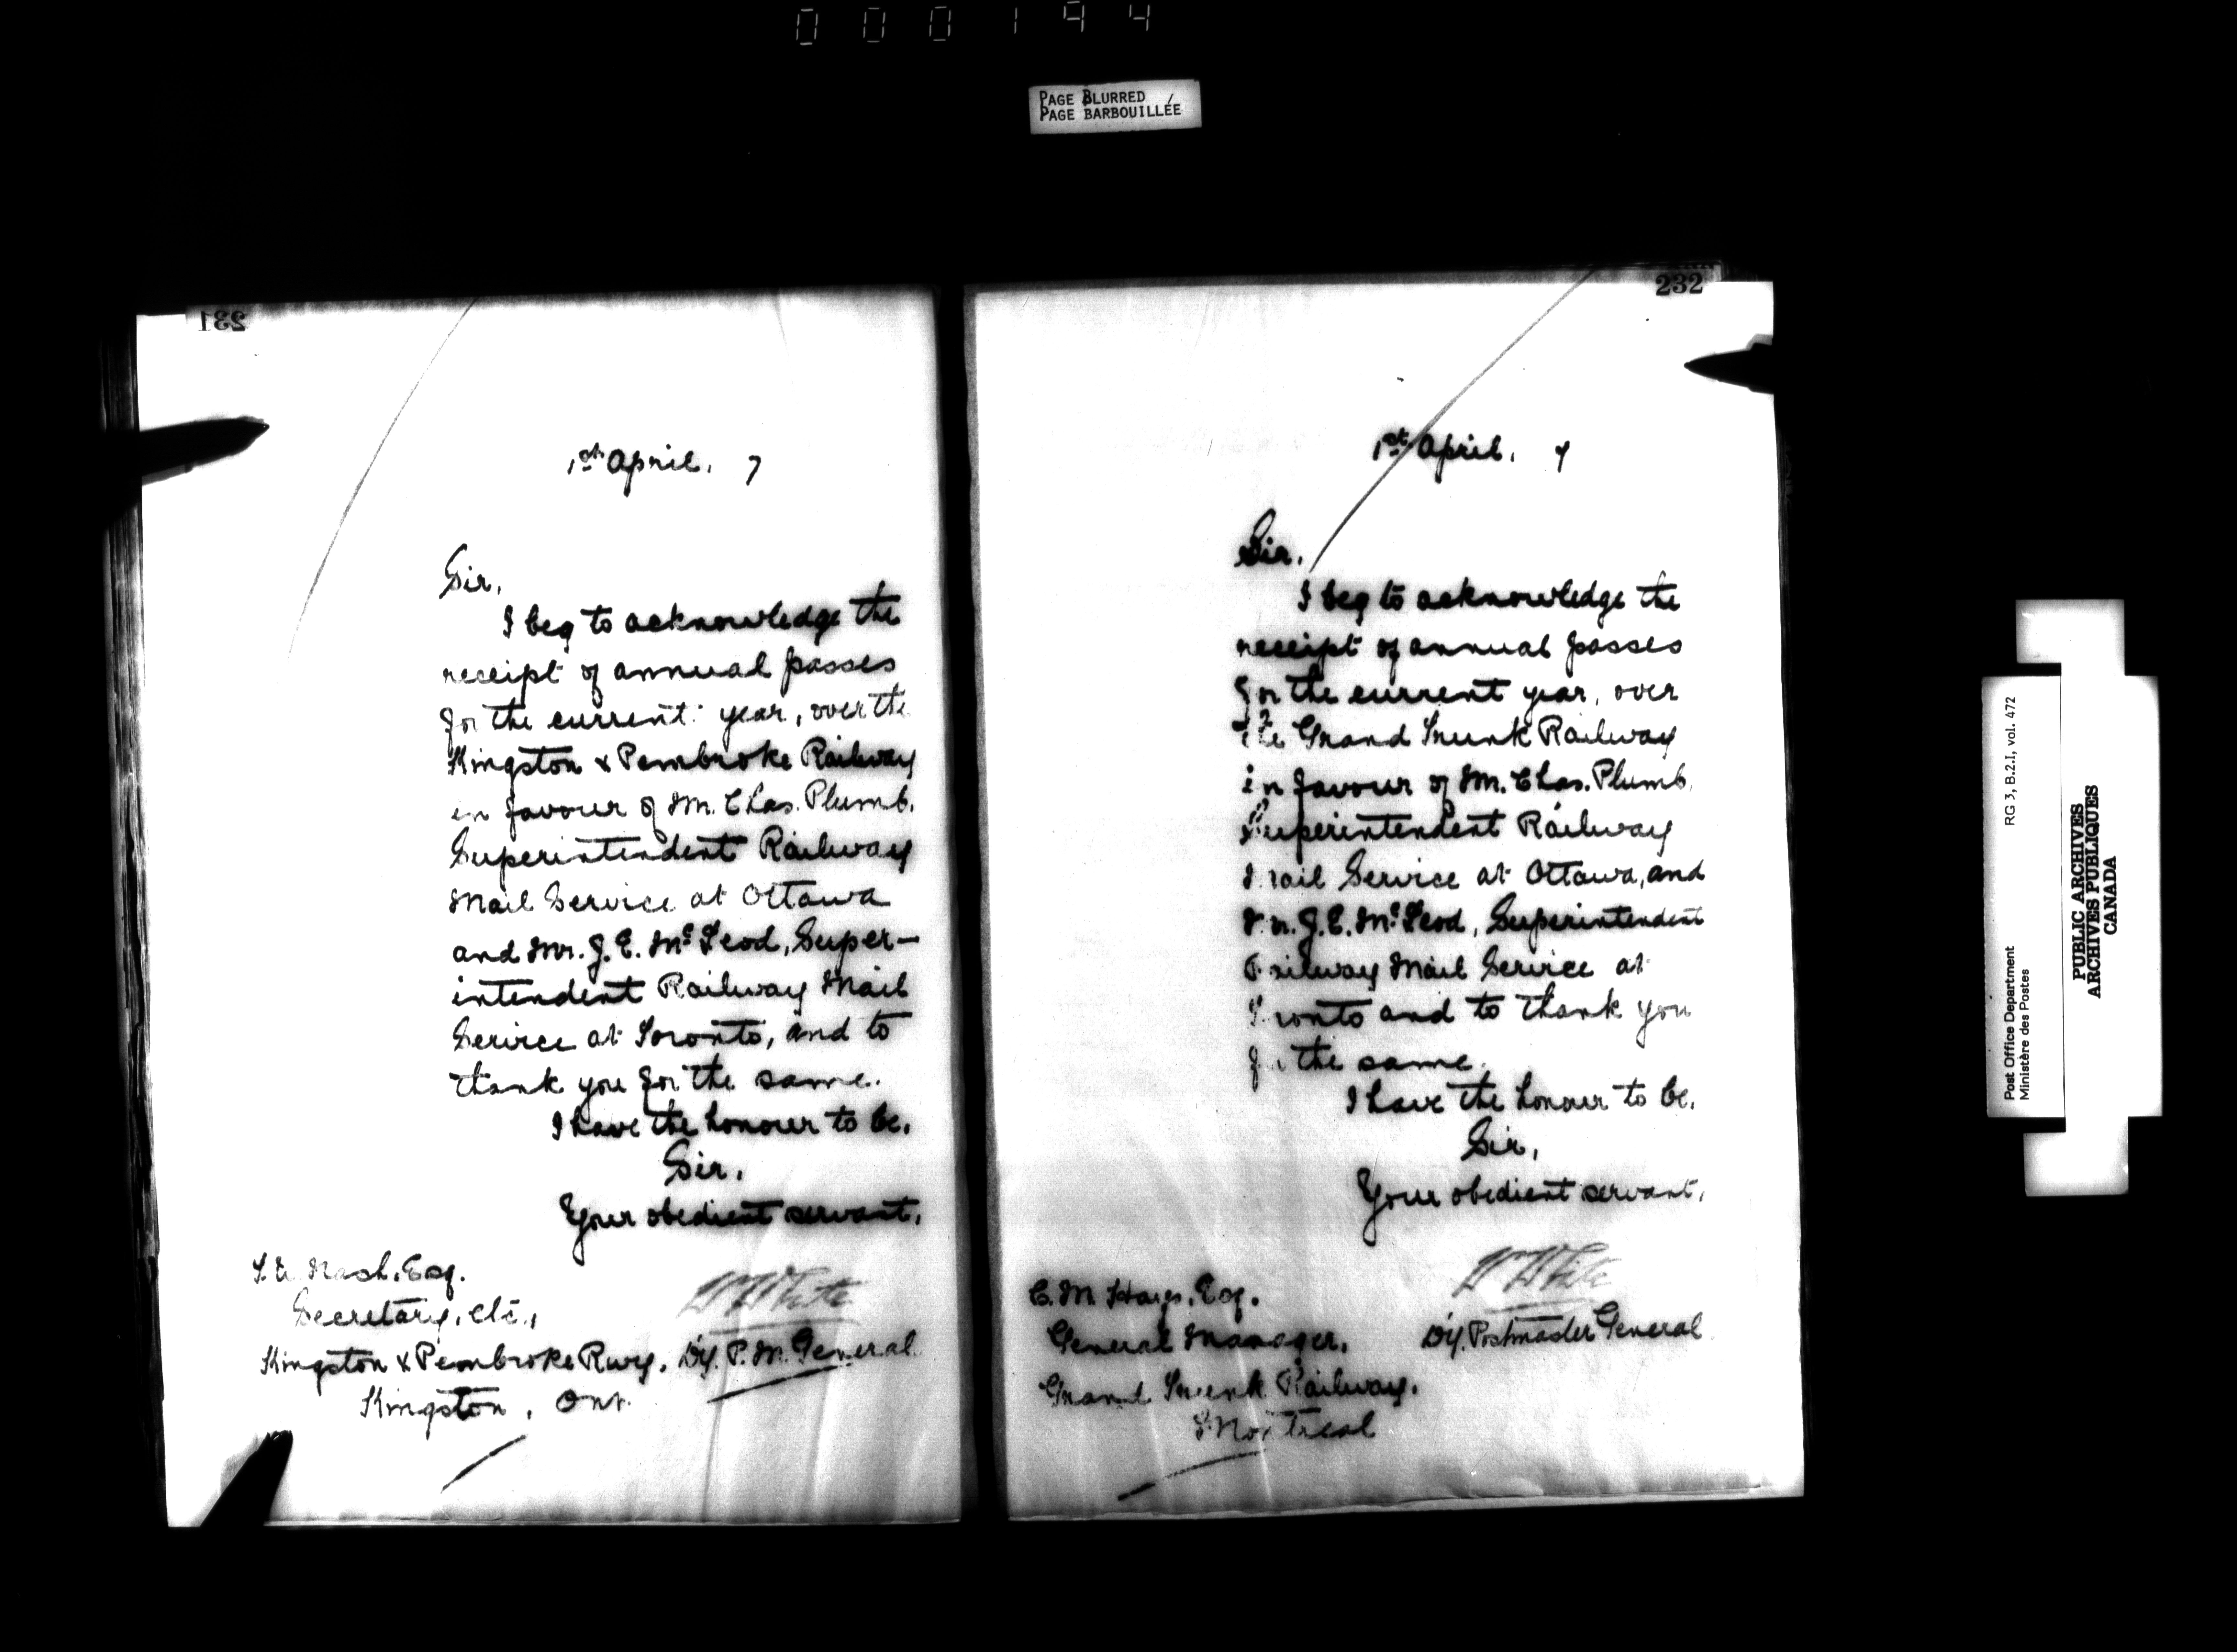 000194
PAGE BLURRED
PAGE BARBOUILLÉE
231
1st April. 7
Sir,
I beg to acknowledge the
receipt of annual passes
for the current year, over the
Kingston & Pembroke Railway
in favour of Mr. Chas. Plumb,
Superintendent Railway
Mail Service at Ottawa
and Mr. J. E. McLeod, Super-
intendent Railway Mail
Service at Toronto, and to
thank you for the same.
I have the honour to be,
Sir,
Your obedient servant,
W White
Dy. P. M. General
Nash, Esq.
Secretary, etc.,
Kingston & Pembroke Rwy.
Kingston, Ont.
232
1st April. 7
Sir,
I beg to acknowledge the
receipt of annual passes
for the current year, over
the Grand Trunk Railway
in favour of Mr. Chas. Plumb,
Superintendent Railway
Mail Service at Ottawa, and
Mr. J. E. McLeod, Superintendent
Railway Mail Service at
Toronto and to thank you
for the same.
I have the honour to be,
Sir,
Your obedient servant,
W White
Dy. Postmaster General
C. M. Hays, Esq.
General Manager,
Grand Trunk Railway,
Montreal
Post Office Department RG 3, B.2.I, vol. 472
Ministère des Postes
PUBLIC ARCHIVES
ARCHIVES PUBLIQUES
CANADA